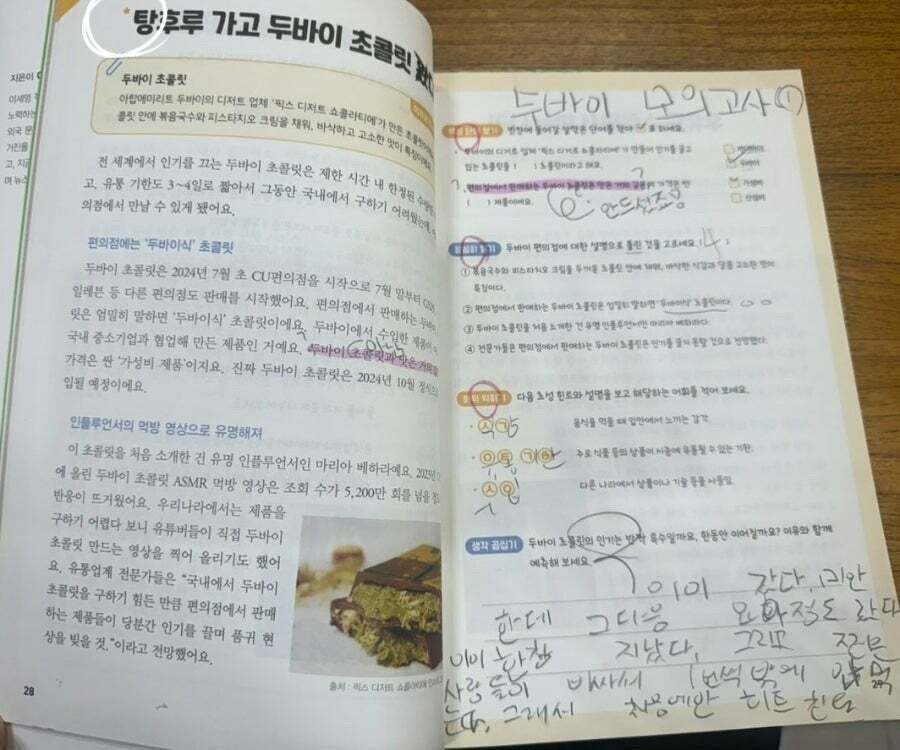 *탕후루 가고 두바이 초콜릿
두바이 초콜릿
아랍에미리트 두바이의 디저트 업체 '픽스 디저트 쇼콜라티에'가 만든 초콜릿이에요.
콜릿 안에 볶음국수와 피스타치오 크림을 채워, 바삭하고 고소한 맛이 특징이에요
전 세계에서 인기를 끄는 두바이 초콜릿은 제한 시간 내 한정된 수량만
고, 유통 기한도 3~4일로 짧아서 그동안 국내에서 구하기 어려웠는데,
의점에서 만날 수 있게 됐어요.
편의점에는 '두바이식' 초콜릿
두바이 초콜릿은 2024년 7월 초 CU편의점을 시작으로 7월 말부터 GS25,
일레븐 등 다른 편의점도 판매를 시작했어요. 편의점에서 판매하는 두바이
릿은 엄밀히 말하면 '두바이식' 초콜릿이에요. 두바이에서 수입한 제품이
국내 중소기업과 협업해 만든 제품인 거예요. 두바이 초콜릿과 맛은 거의
가격은 싼 '가성비 제품'이지요. 진짜 두바이 초콜릿은 2024년 10월 정식
입될 예정이에요.
인플루언서의 먹방 영상으로 유명해져
이 초콜릿을 처음 소개한 건 유명 인플루언서인 마리아 베하라예요. 2023년
에 올린 두바이 초콜릿 ASMR 먹방 영상은 조회 수가 5,200만 회를 넘을 정
반응이 뜨거웠어요. 우리나라에서는 제품을
구하기 어렵다 보니 유튜버들이 직접 두바이
초콜릿 만드는 영상을 찍어 올리기도 했어
요. 유통업계 전문가들은 "국내에서 두바이
초콜릿을 구하기 힘든 만큼 편의점에서 판매
하는 제품들이 당분간 인기를 끌며 품귀 현
상을 빚을 것."이라고 전망했어요.
28
출처 : 픽스 디저트 쇼콜라티에
지은이
이세영
노력하는
외국 문
거진을
고, 지금
여 뉴스
두바이 모의고사 ①
빈칸에 들어갈 알맞은 단어를 찾아 ✓표 하세요.
두바이의 디저트 업체 '픽스 디저트 쇼콜라티에'가 만들어 인기를 끌고
있는 초콜릿을 ( ) 초콜릿이라고 해요.
두바이
편의점에서 판매하는 두바이 초콜릿은 맛은 거의 같은데 가격은 싼
( ) 제품이에요.
가성비
두바이 편의점에 대한 설명으로 틀린 것을 고르세요. ( 4 )
① 볶음국수와 피스타치오 크림을 두꺼운 초콜릿 안에 채워, 바삭한 식감과 달콤 고소한 맛이
특징이다.
② 편의점에서 판매하는 두바이 초콜릿은 엄밀히 말하면 '두바이식' 초콜릿이다.
③ 두바이 초콜릿을 처음 소개한 건 유명 인플루언서인 마리아 베하라다.
④ 전문가들은 편의점에서 판매하는 두바이 초콜릿은 인기를 끌지 못할 것으로 전망했다.
다음 초성 힌트와 설명을 보고 해당하는 어휘를 적어 보세요.
식감 음식을 먹을 때 입안에서 느끼는 감각.
유통 기한 주로 식품 등의 상품이 시중에 유통될 수 있는 기한.
수입 다른 나라에서 상품이나 기술 등을 사들임.
생각 곱씹기 두바이 초콜릿의 인기는 반짝 특수일까요, 한동안 이어질까요? 이유와 함께
예측해 보세요.
이미 갔다. 미안
한데 그다음 요아정도 갔다
이미 한참 지났다. 그리고
사람들이 비싸서 1번씩 밖에 안 먹
는다. 그래서 처음에만 히트 친